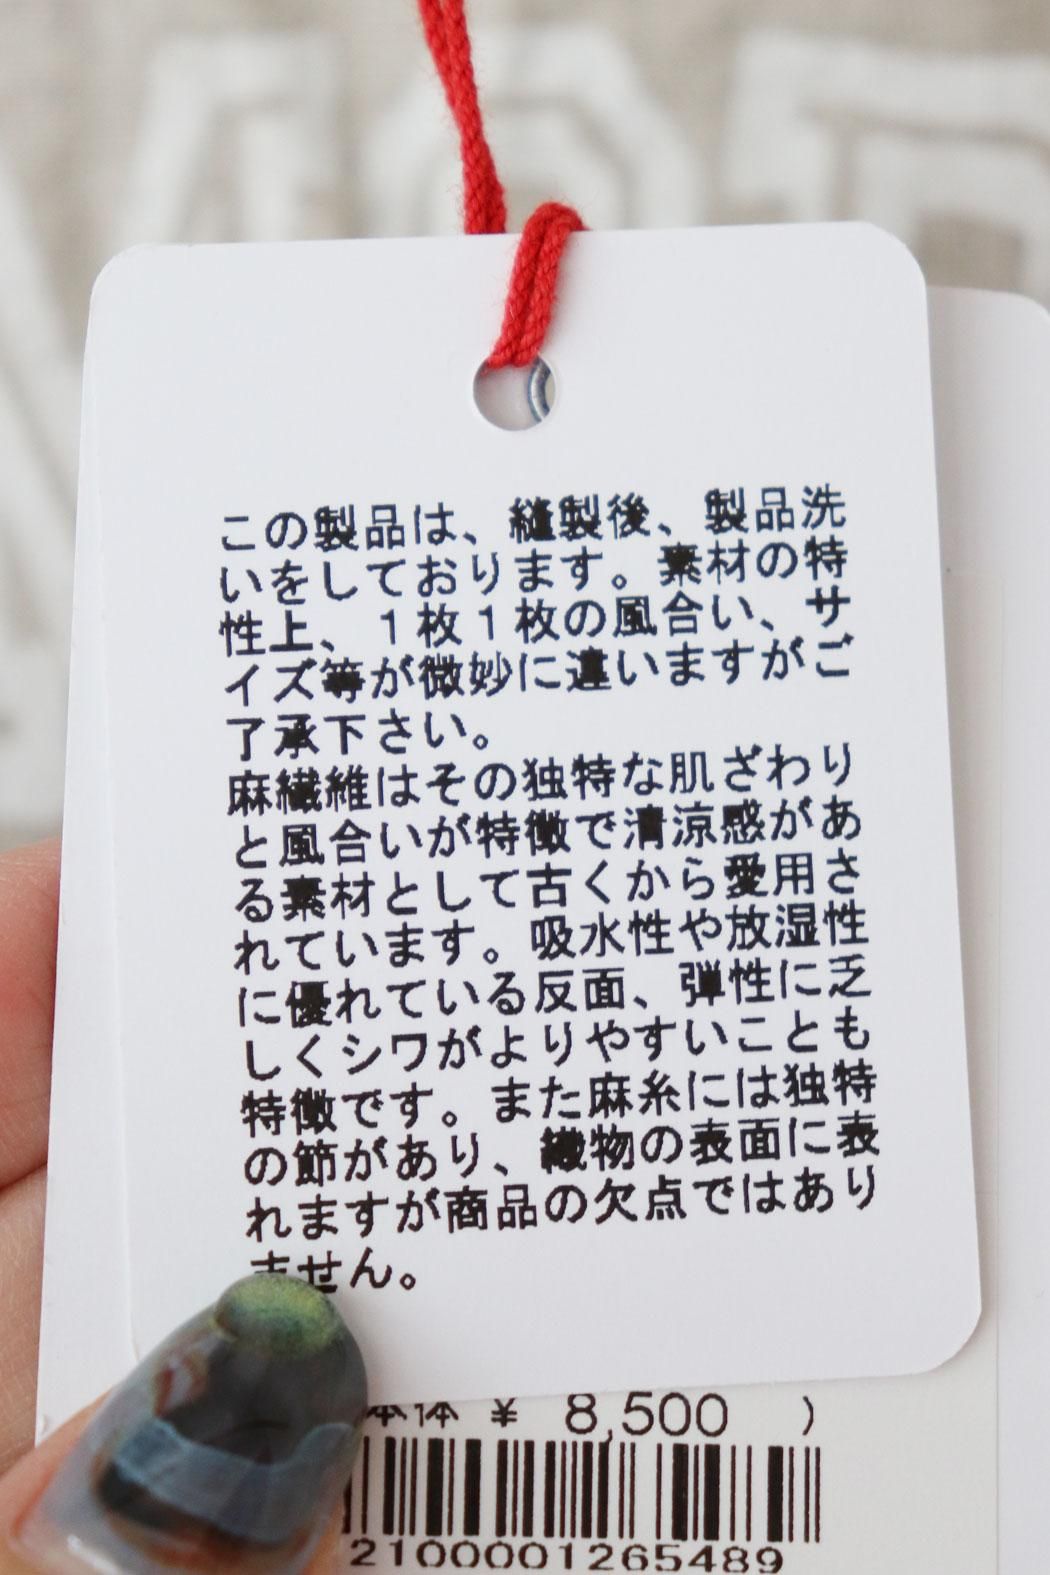 この製品は、縫製後、製品洗
いをしております。素材の特
性上、1枚1枚の風合い、サ
イズ等が微妙に違いますがご
了承下さい。
麻繊維はその独特な肌ざわり
と風合いが特徴で清涼感があ
る素材として古くから愛用さ
れています。吸水性や放湿性
に優れている反面、弾性に乏
しくシワがよりやすいことも
特徴です。また麻糸には独特
の節があり、織物の表面に表
れますが商品の欠点ではあり
ません。
本体 ¥ 8,500 )
2100001265489